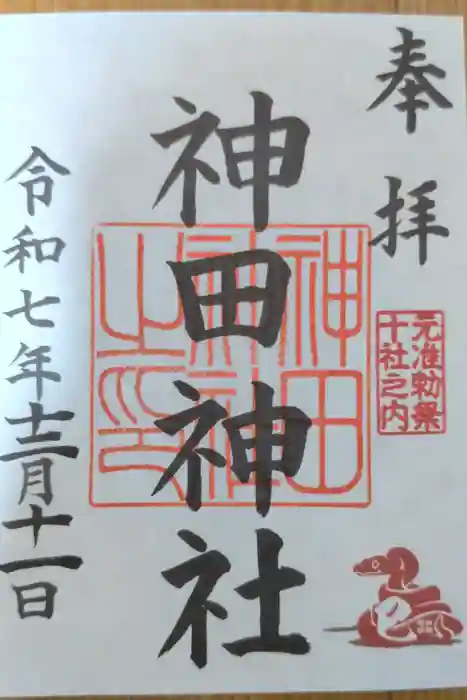 奉拝
元准勅祭
十社之内
神田神社
神田
神社
之印
令和七年十二月十一日